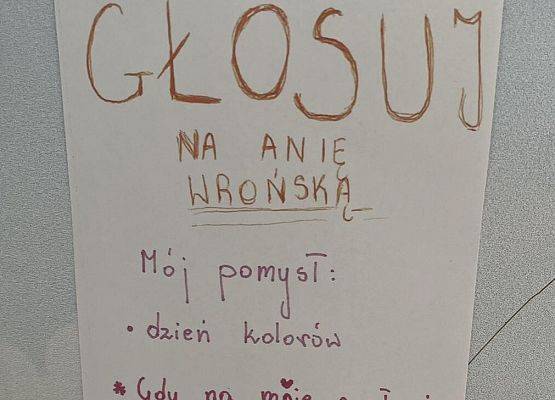 GŁOSUJ
NA ANIĘ
WROŃSKĄ
Mój pomysł:
• dzień kolorów
* Gdy na moje